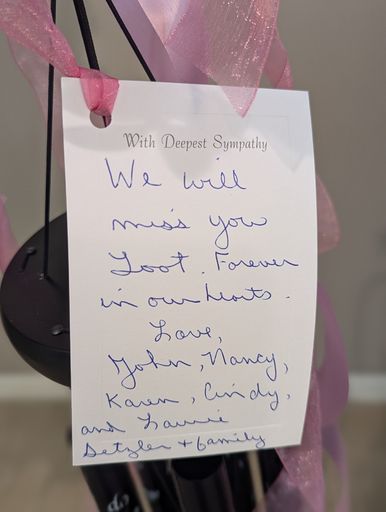 With Deepest Sympathy
We will
miss you
Toot. Forever
in our hearts.
Love,
John, Nancy,
Karen, Cindy,
and Laurie
Detzler + family